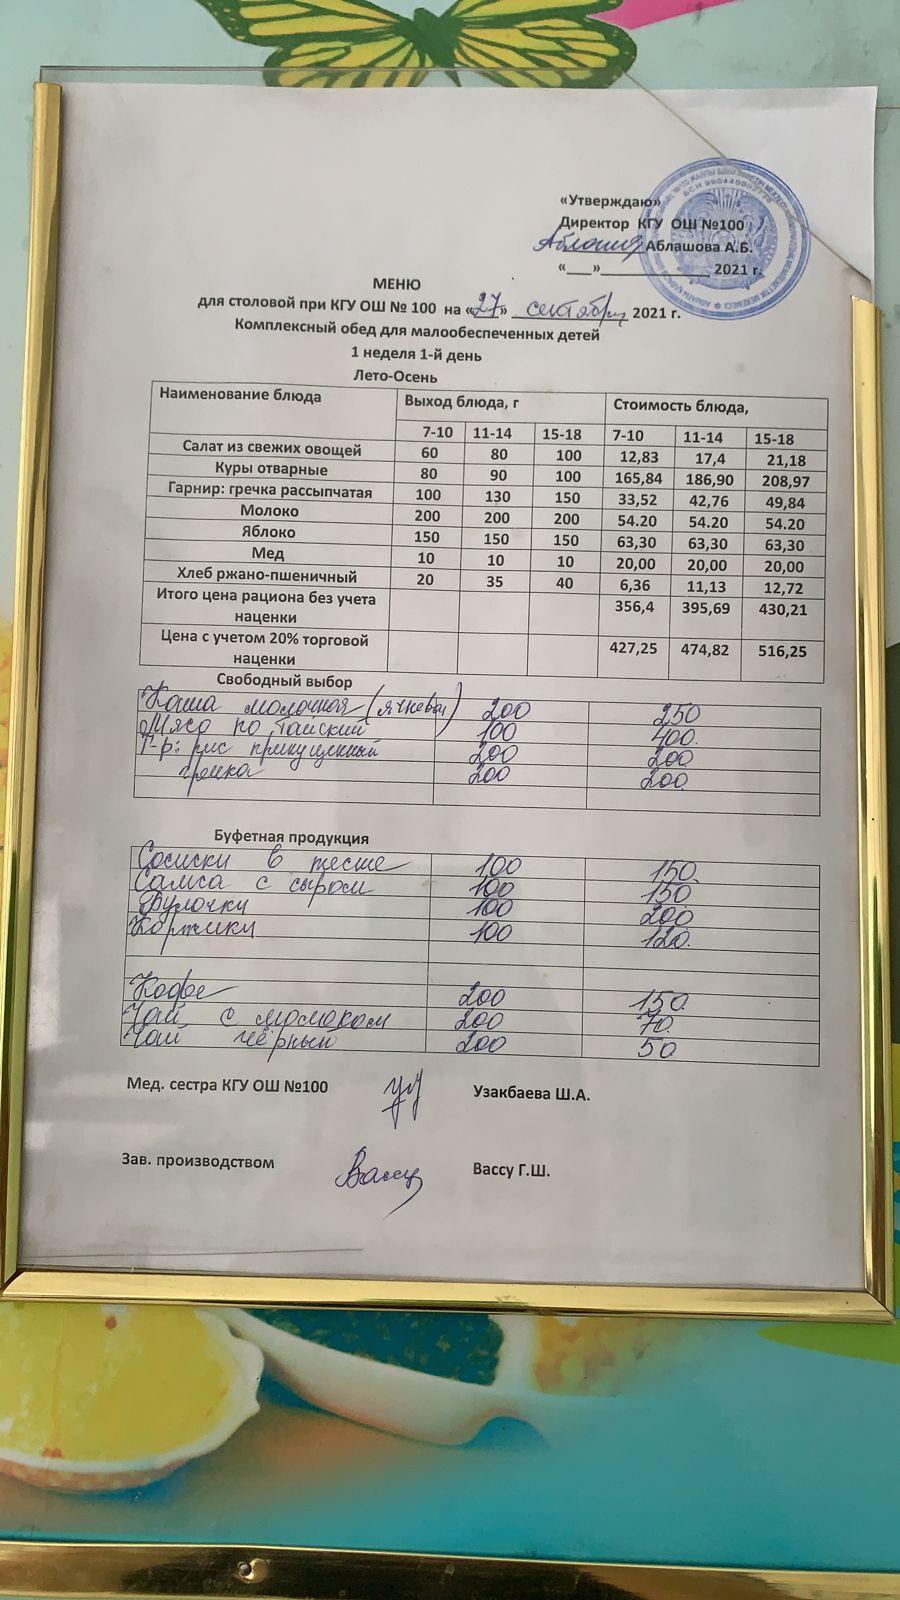 «Утверждаю»
Директор КГУ ОШ №100
Аблашова А.Б.
«___»______________ 2021 г.
МЕНЮ
для столовой при КГУ ОШ № 100 на «27» сентября 2021 г.
Комплексный обед для малообеспеченных детей
1 неделя 1-й день
Лето-Осень
Наименование блюда Выход блюда, г Стоимость блюда,
7-10 11-14 15-18 7-10 11-14 15-18
Салат из свежих овощей 60 80 100 12,83 17,4 21,18
Куры отварные 80 90 100 165,84 186,90 208,97
Гарнир: гречка рассыпчатая 100 130 150 33,52 42,76 49,84
Молоко 200 200 200 54.20 54.20 54.20
Яблоко 150 150 150 63,30 63,30 63,30
Мед 10 10 10 20,00 20,00 20,00
Хлеб ржано-пшеничный 20 35 40 6,36 11,13 12,72
Итого цена рациона без учета
наценки 356,4 395,69 430,21
Цена с учетом 20% торговой
наценки 427,25 474,82 516,25
Свободный выбор
Каша молочная (ячневая) 200 250
Мясо по тайский 100 400.
Г-р: рис припущенный 200 200
гречка 200 200.
Буфетная продукция
Сосиски в тесте 100 150.
Самса с сыром 100 150
Булочки 100 200
Коржики 100 120.
Кофе 200 150.
Чай с молоком 200 70.
Чай чёрный 200 50
Мед. сестра КГУ ОШ №100 Узакбаева Ш.А.
Зав. производством Вассу Вассу Г.Ш.